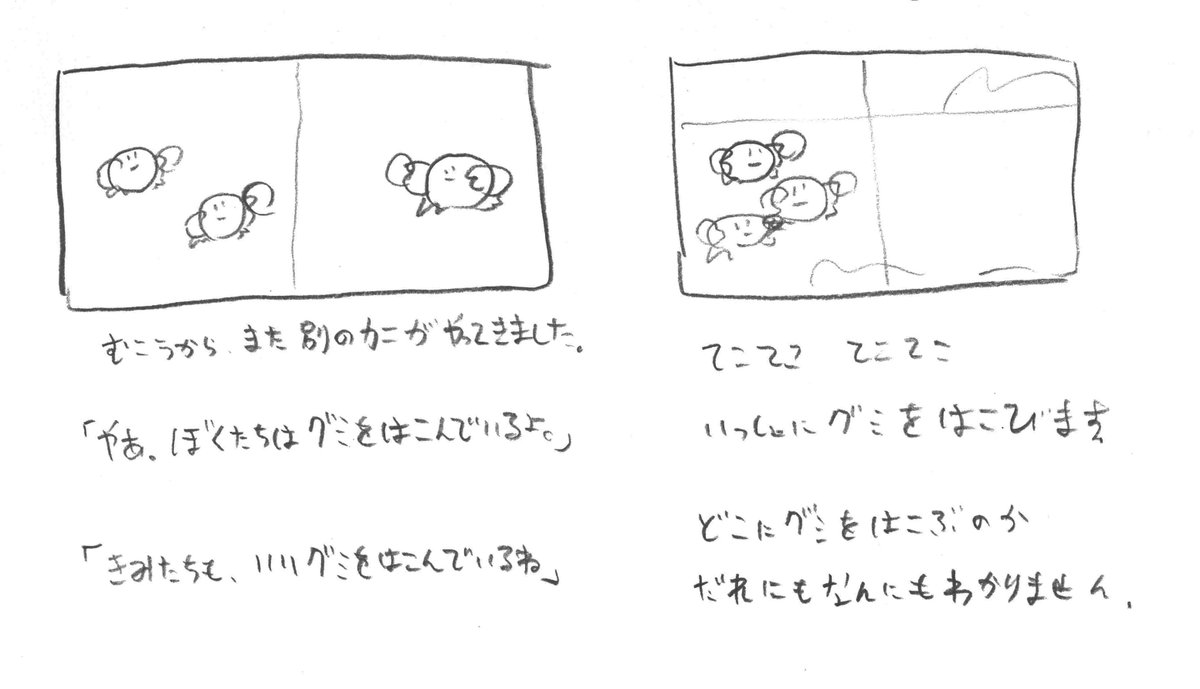 むこうから、また別のカニがやってきました。
「やあ。ぼくたちはグミをはこんでいるよ。」
「きみたちも、いいグミをはこんでいるね」
てこてこ てこてこ
いっしょにグミをはこびます
どこにグミをはこぶのか
だれにもなんにもわかりません。